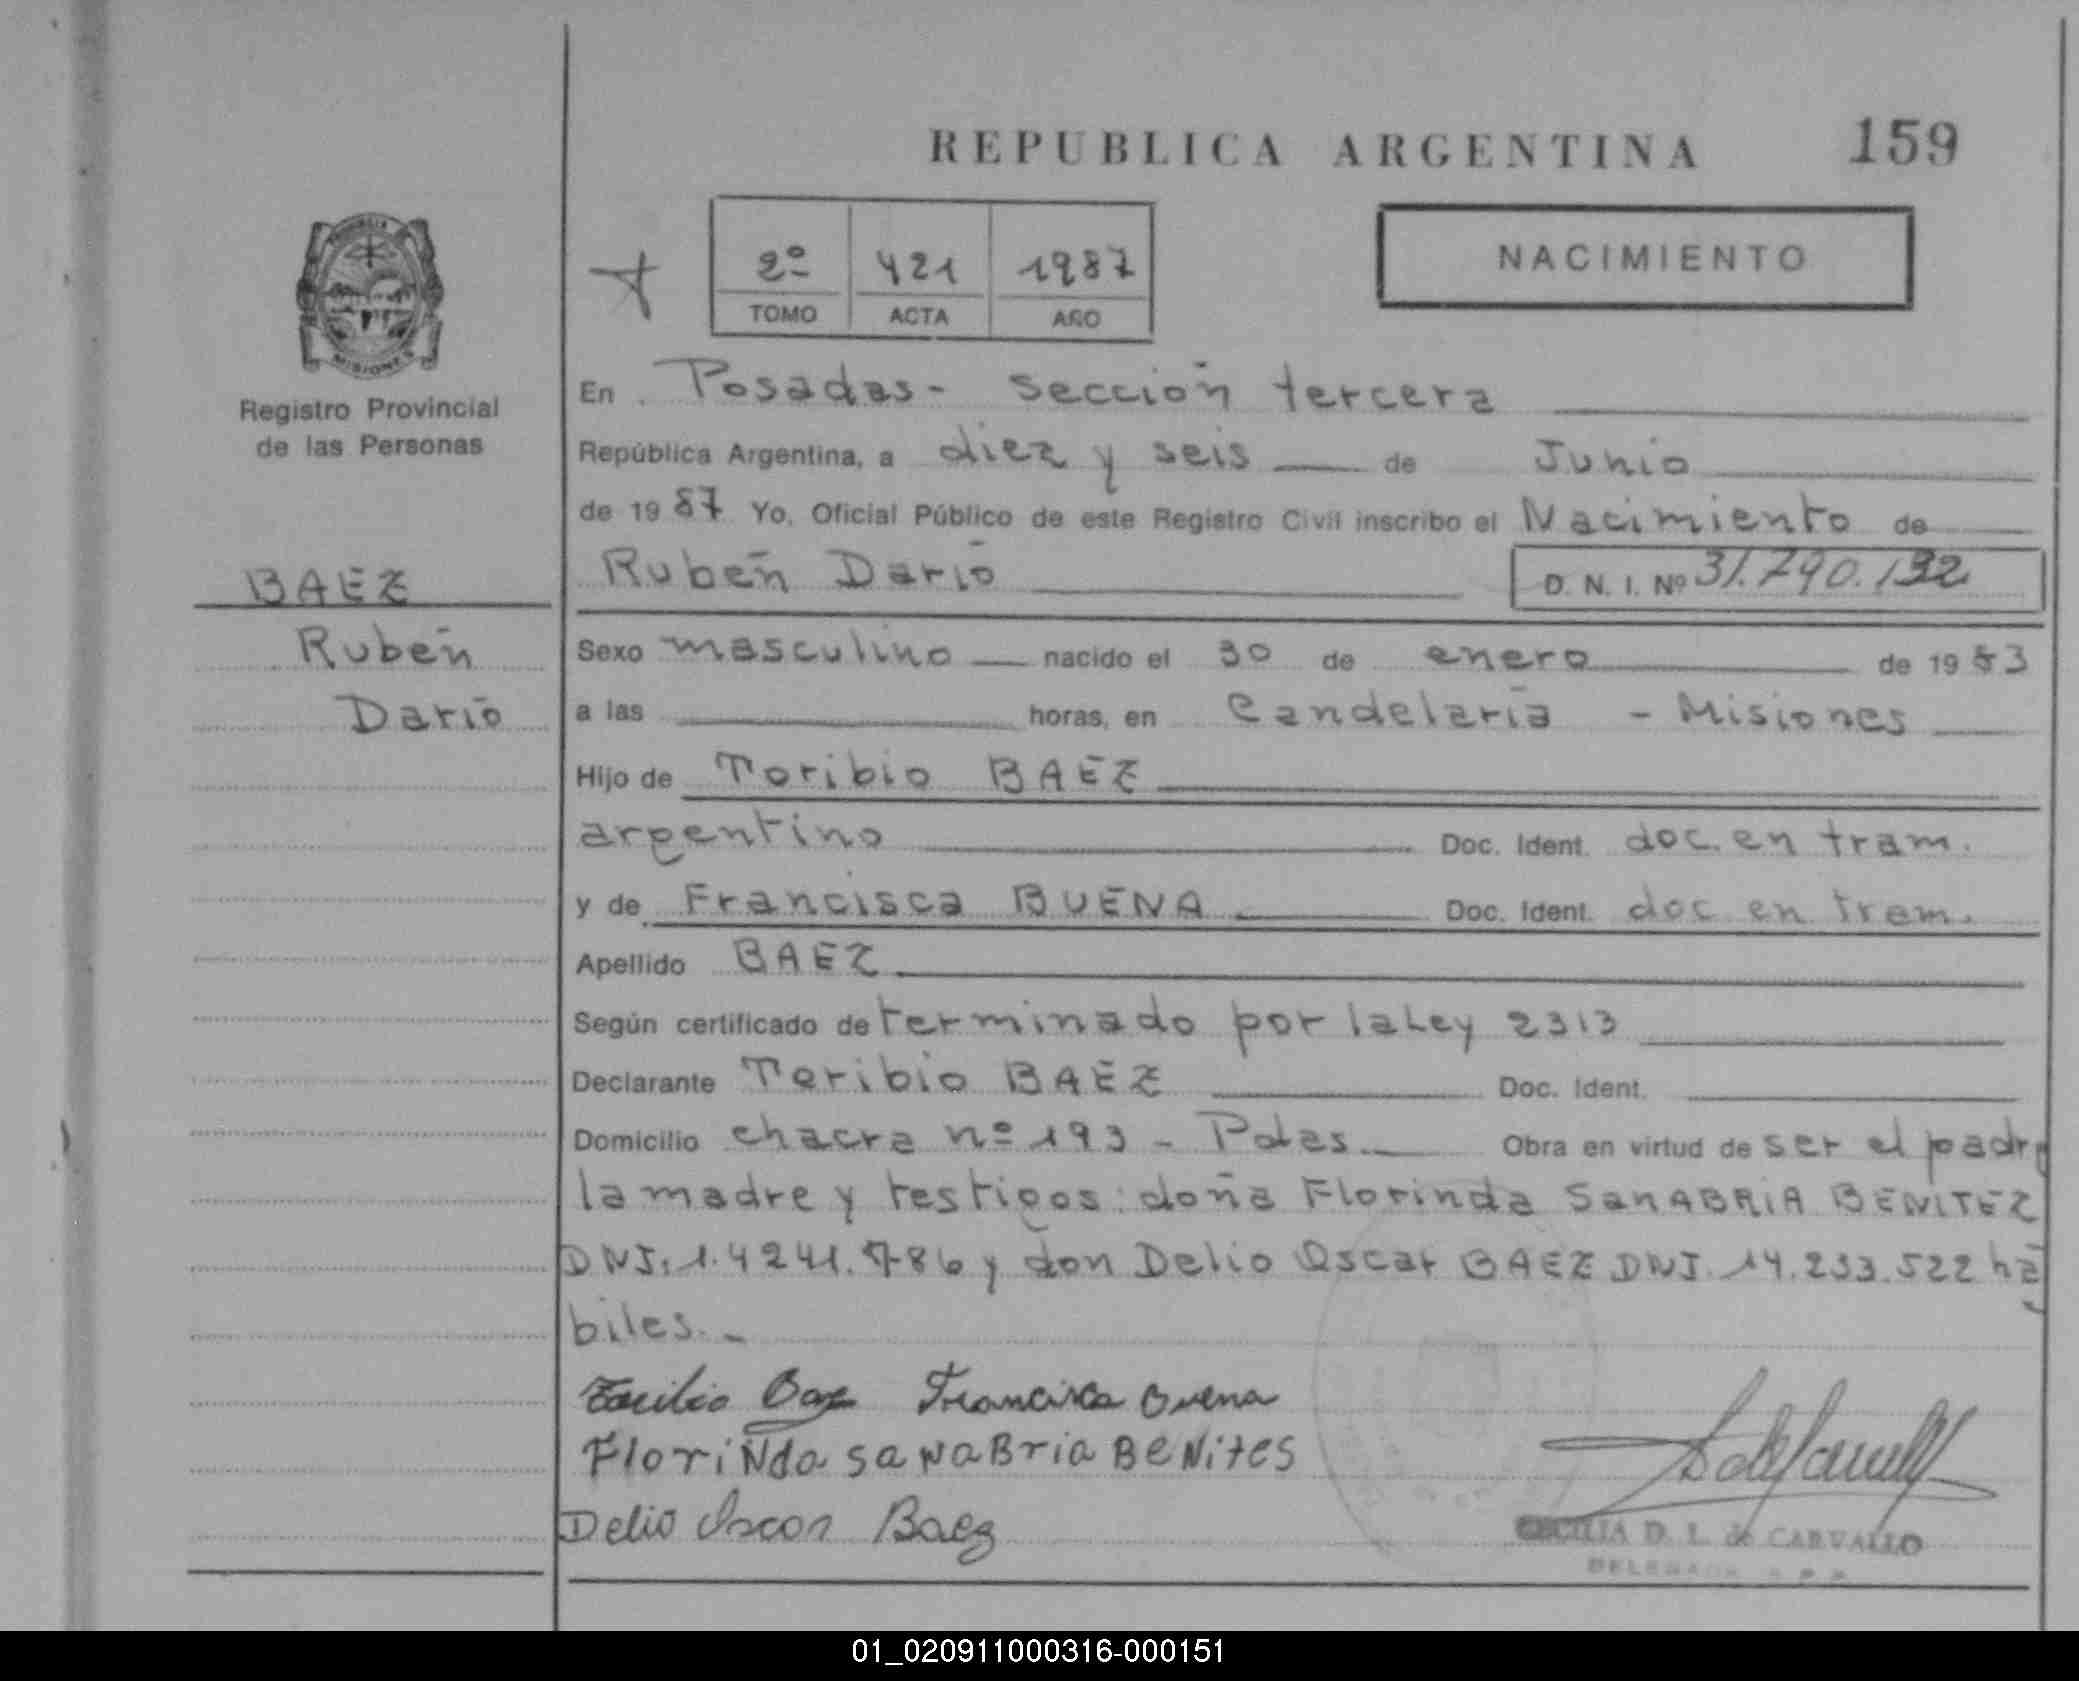 REPUBLICA ARGENTINA 159
NACIMIENTO
2º 421 1987
TOMO ACTA AÑO
MISIONES
Registro Provincial
de las Personas
BAEZ
Rubén
Darío
En Posadas - sección tercera
República Argentina, a diez y seis de Junio
de 1987 Yo, Oficial Público de este Registro Civil inscribo el Nacimiento de
Rubén Darío D. N. I. Nº 31.790.132
Sexo masculino nacido el 30 de enero de 1983
a las horas, en Candelaria - Misiones
Hijo de Toribio BAEZ
argentino Doc. Ident. doc. en tram.
y de Francisca BUENA Doc. Ident. doc en tram.
Apellido BAEZ
Según certificado determinado por la Ley 2313
Declarante Toribio BAEZ Doc. Ident.
Domicilio chacra nº 193 - Pdas. Obra en virtud de ser el padre
la madre y testigos: doña Florinda SanABRiA BENITEZ
DNI. 1.4241.786 y don Delio Oscar BAEZ DNI. 14.233.522 há
biles. -
Baez Francisca Buena
FloriNda saNaBria BeNites
Delio Oscar Baez
CECILIA D. L. de CARVALLO
01_020911000316-000151